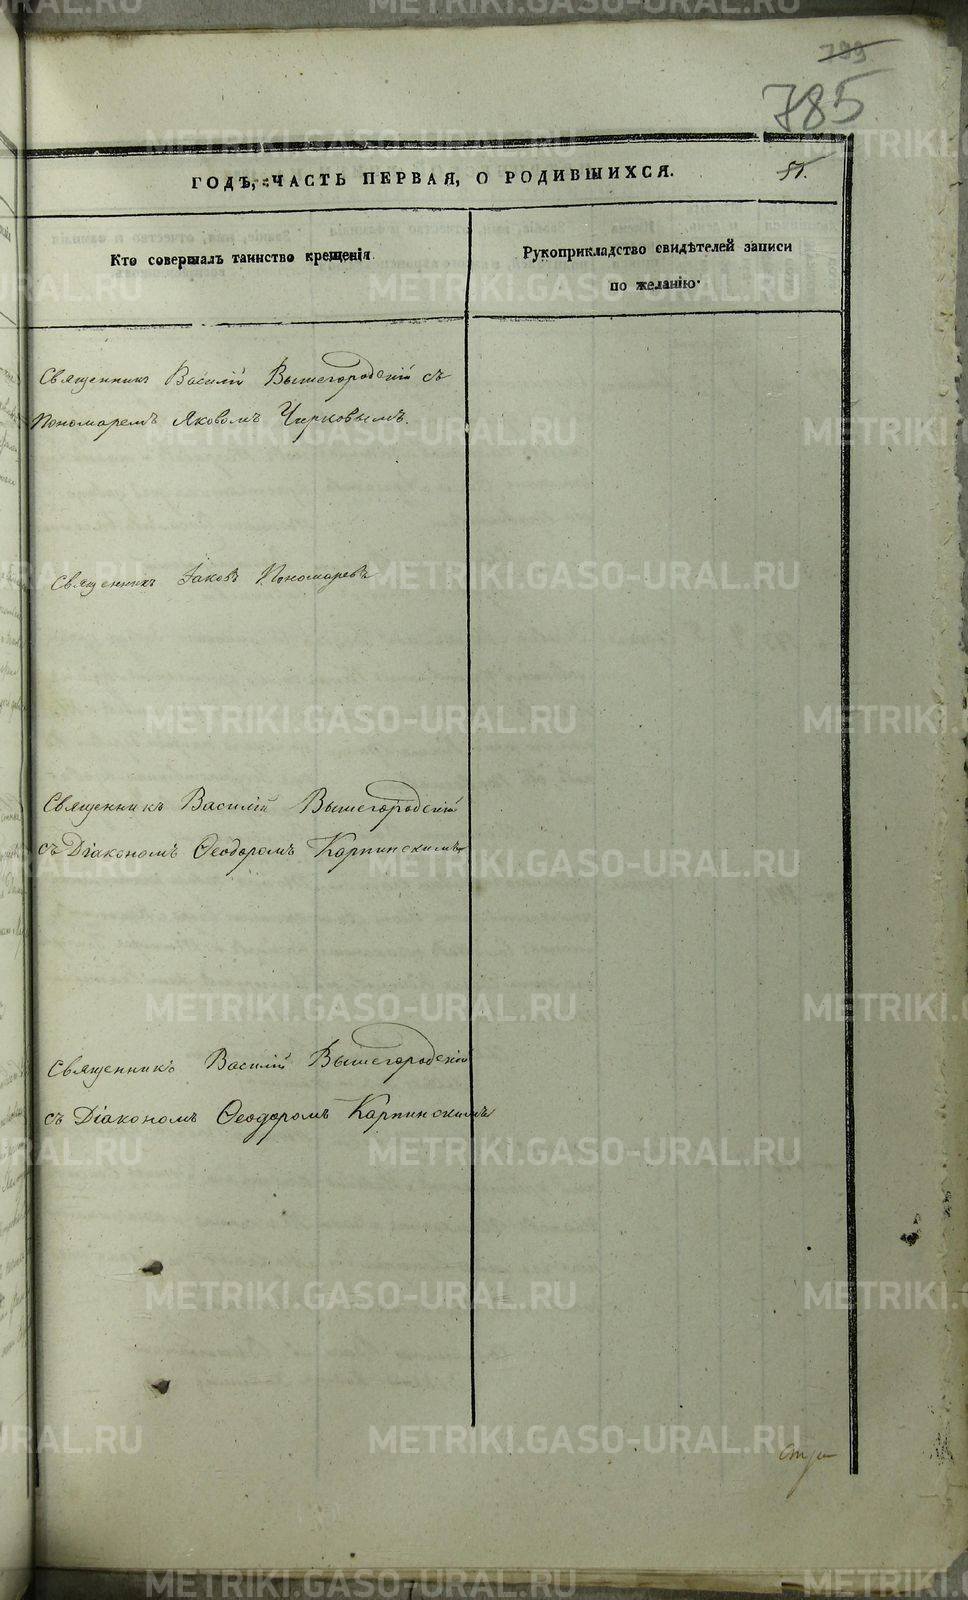 799
785
ГОДЪ, ЧАСТЬ ПЕРВАЯ, О РОДИВШИХСЯ.
55.
Кто совершалъ таинство крещенія
Рукоприкладство свидѣтелей записи
по желанію.
Священникъ Василій Вышегородскій съ
Пономаремъ Яковомъ Чирковымъ.
Священникъ Іаковъ Пономаревъ
Священникъ Василій Вышегородскій
съ Діакономъ Ѳеодоромъ Карпинскимъ
Священникъ Василій Вышегородскій
съ Діакономъ Ѳеодоромъ Карпинскимъ
METRIKI.GASO-URAL.RU